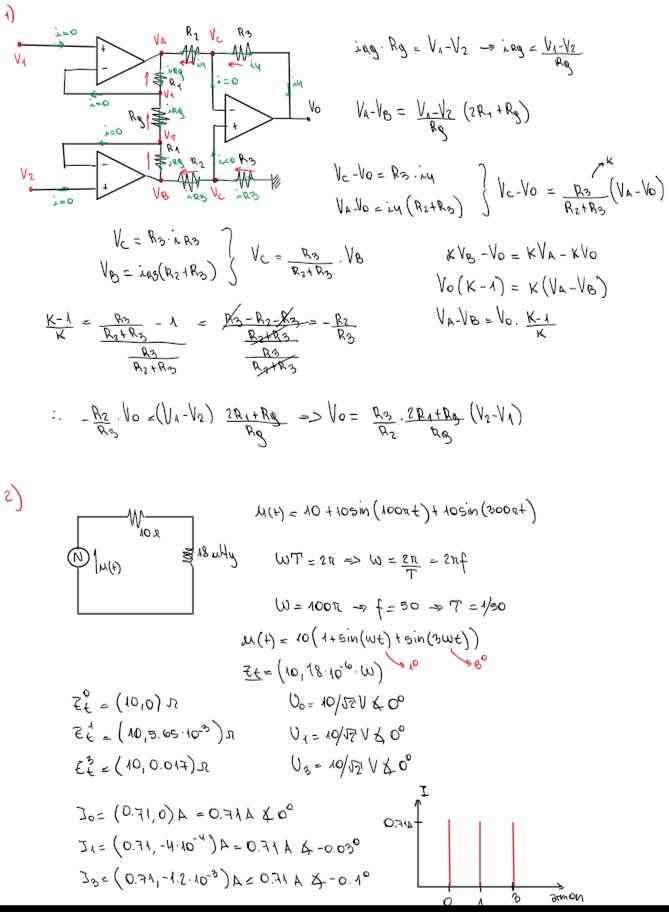 1)
i=0
V1
VA
R2
VC
R3
iRg
i4
i=0
i4
R1
i=0
V1
Rg
iRg
V0
i=0
V2
R1
iRg
i=0
R2
R3
V2
i=0
VB
iR3
VC
iR3
iRg · Rg = V1-V2 → iRg = V1-V2 / Rg
VA-VB = V1-V2 / Rg (2R1+Rg)
VC-V0 = R3 · i4
VA-V0 = i4 (R2+R3)
} VC-V0 = R3 / R2+R3 (VA-V0)
K
VC = R3 · iR3
VB = iR3(R2+R3)
} VC = R3 / R2+R3 · VB
KVB - V0 = KVA - KV0
V0(K-1) = K(VA-VB)
VA-VB = V0 · K-1 / K
K-1 / K = R3 / R2+R3 - 1 / R3 / R2+R3 = R3-R2-R3 / R2+R3 / R3 / R2+R3 = - R2 / R3
∴ - R2 / R3 · V0 = (V1-V2) 2R1+Rg / Rg => V0 = R3 / R2 · 2R1+Rg / Rg (V2-V1)
2)
10Ω
18 µHy
N
µ(t)
µ(t) = 10 + 10sin(100πt) + 10sin(300πt)
WT = 2π => W = 2π / T = 2πf
W = 100π → f = 50 → T = 1/50
µ(t) = 10(1+sin(wt)+sin(3wt))
1º
3º
Zt = (10, 18·10⁻⁶·W)
Zt⁰ = (10,0) Ω
U0 = 10/√2 V ∡ 0º
Zt¹ = (10, 5.65·10⁻³) Ω
U1 = 10/√2 V ∡ 0º
Zt³ = (10, 0.017) Ω
U3 = 10/√2 V ∡ 0º
I0 = (0.71, 0) A = 0.71 A ∡ 0º
I1 = (0.71, -4·10⁻⁴) A = 0.71 A ∡ -0.03º
I3 = (0.71, -1.2·10⁻³) A = 0.71 A ∡ -0.1º
I
0.71A
0 1 3
armon